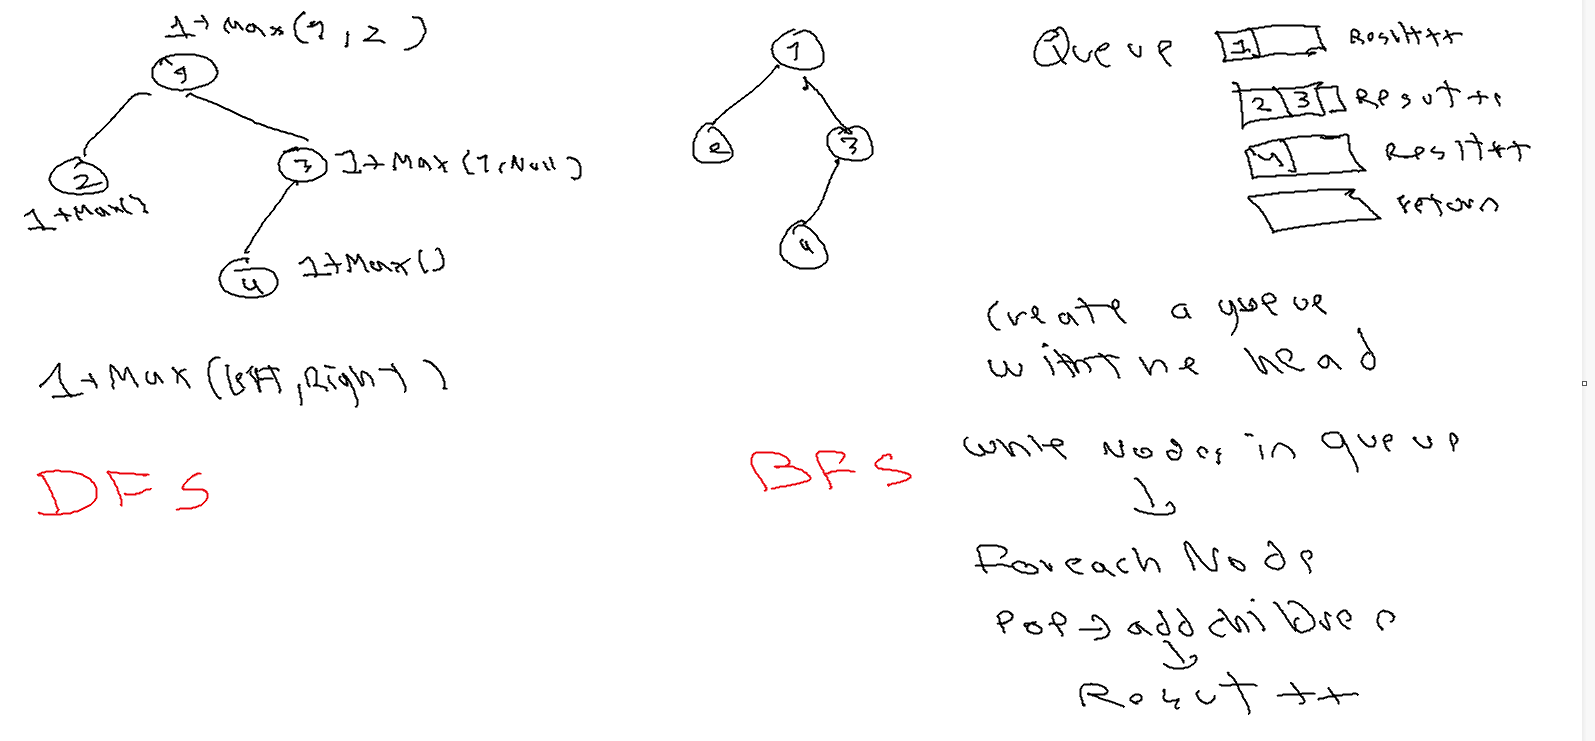 1+ Max(1, 2)
1
2
3
1+ Max(1, Null)
1+Max()
4
1+Max()
1+Max(left, Right)
DFS
1
2
3
4
BFS
Queue
1
Result++
2 3
Result++
4
Result++
return
Create a queue
with the head
While Nodes in queue
Foreach Node
Pop → add children
Result ++